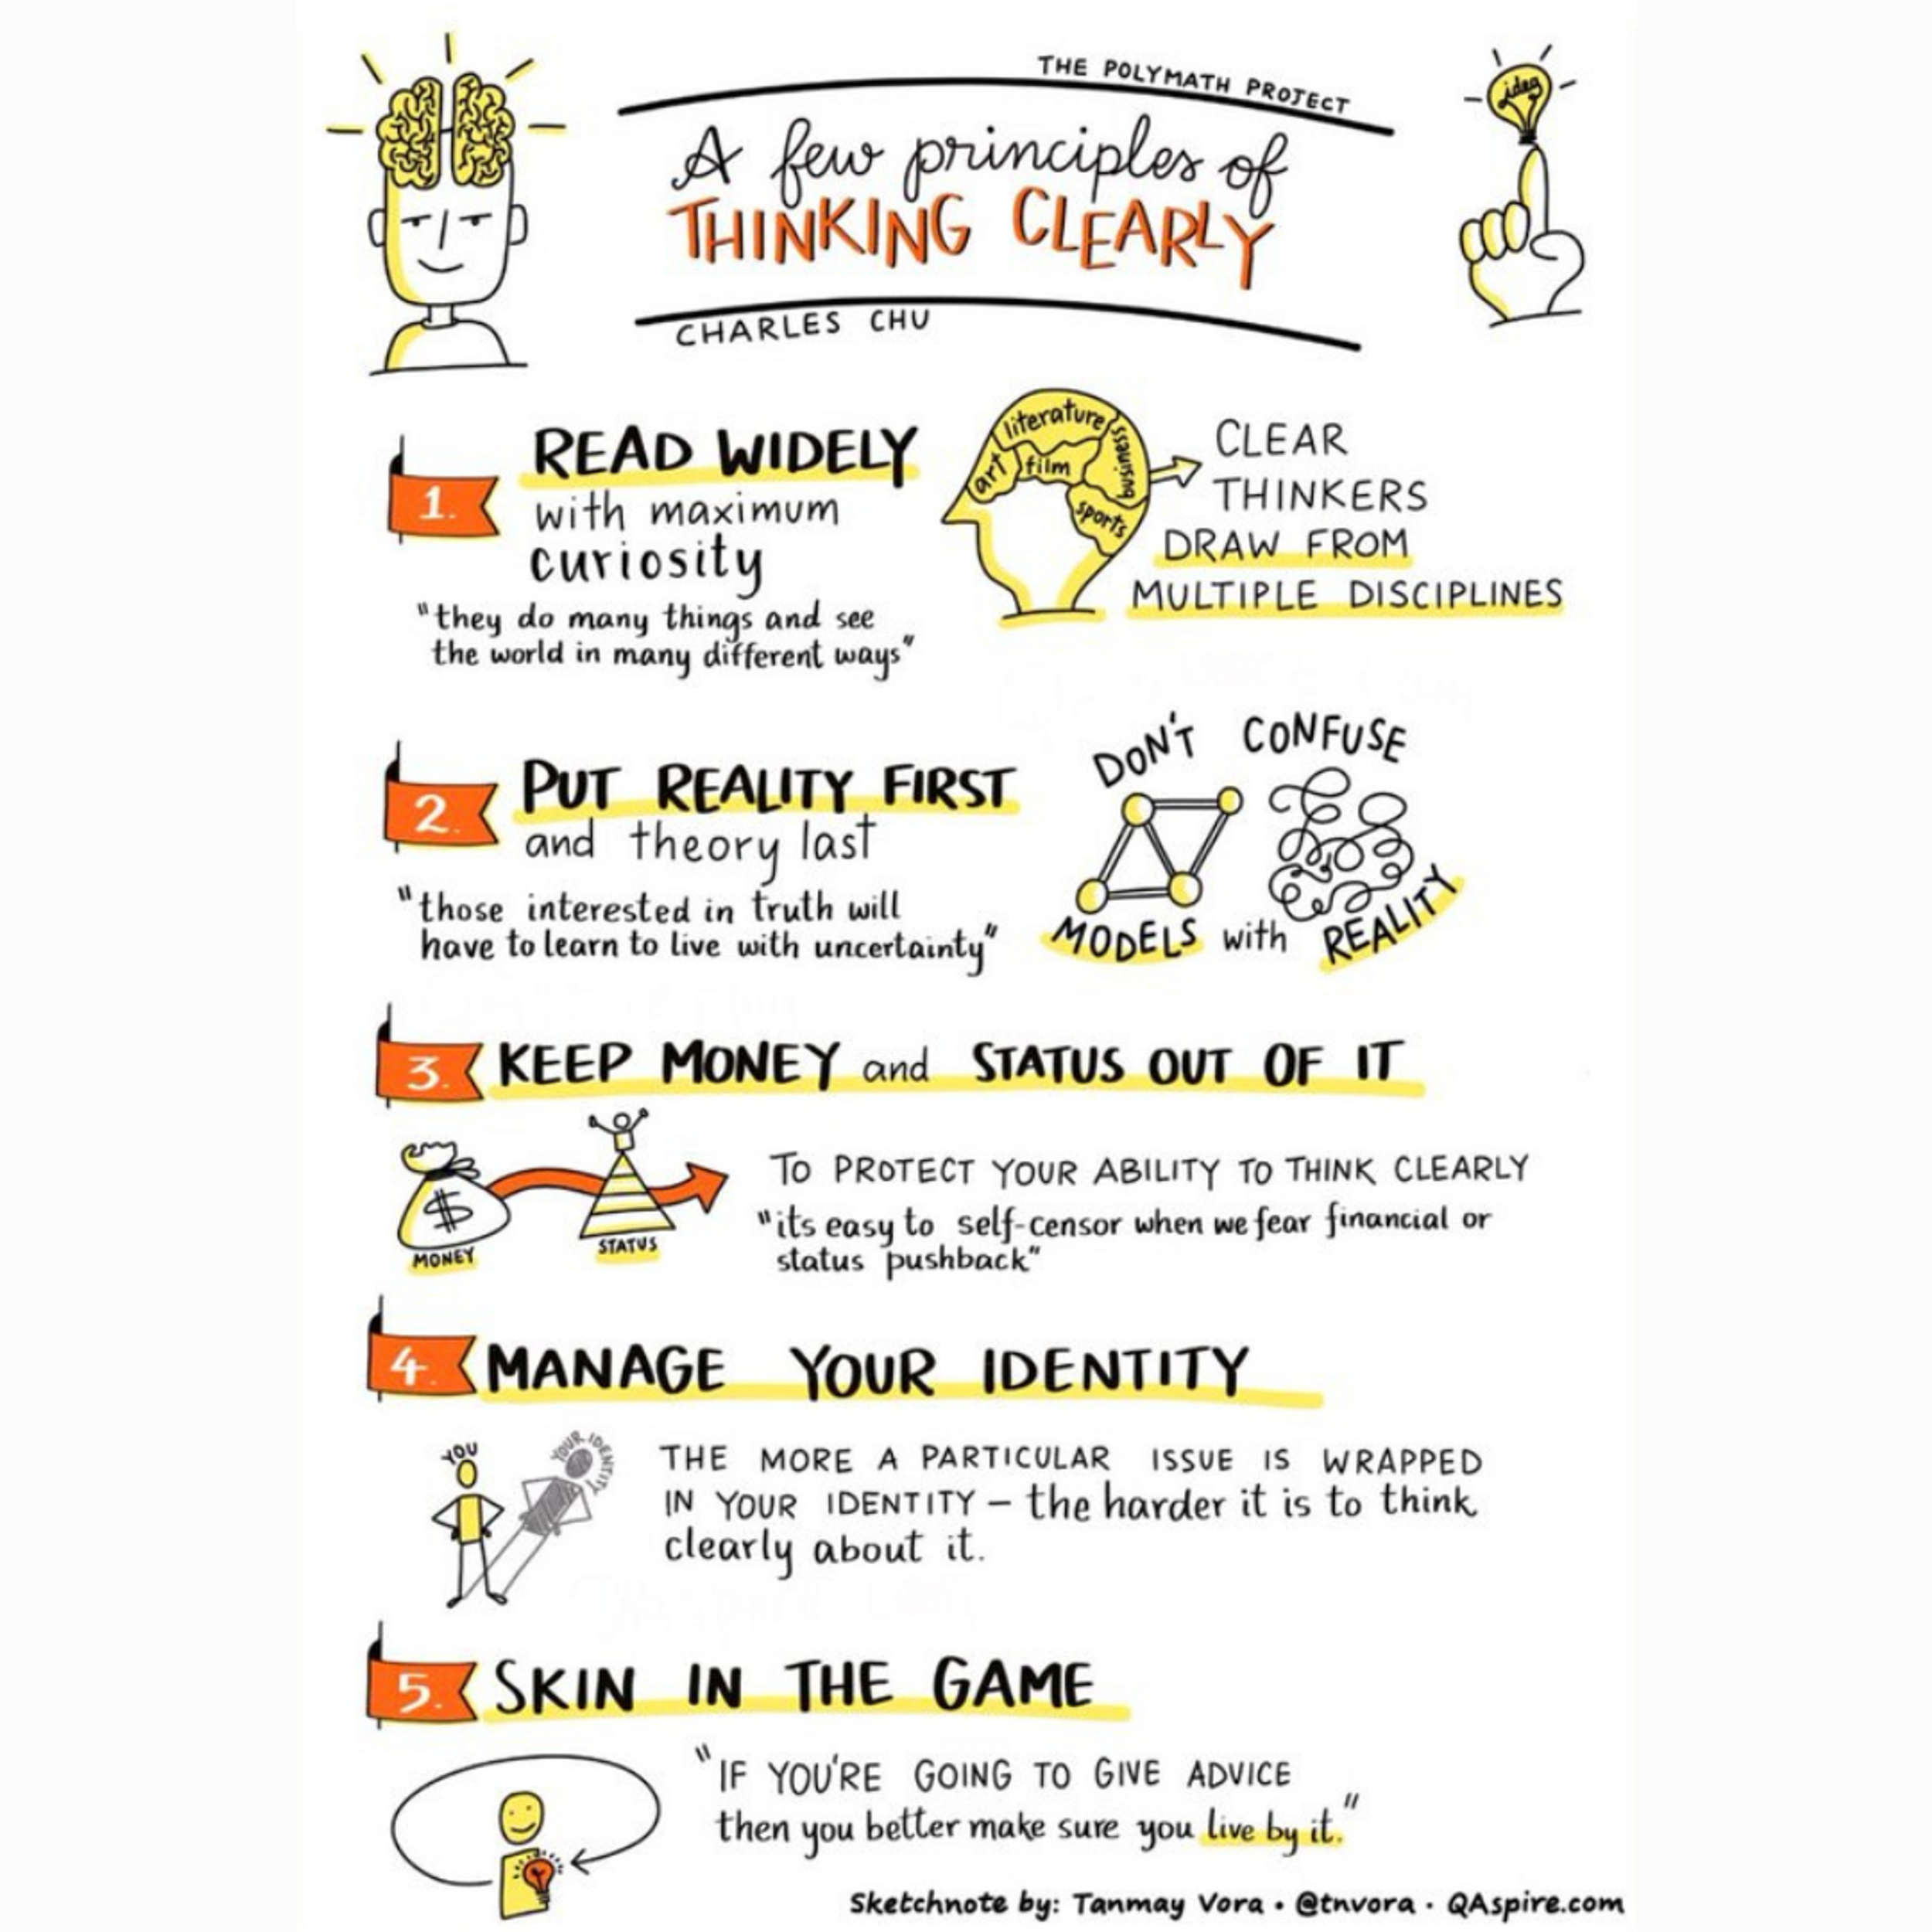 THE POLYMATH PROJECT
A few principles of
THINKING CLEARLY
CHARLES CHU
idea
1.
READ WIDELY
with maximum
curiosity
"they do many things and see
the world in many different ways"
literature
art
film
business
sports
CLEAR
THINKERS
DRAW FROM
MULTIPLE DISCIPLINES
2.
PUT REALITY FIRST
and theory last
"those interested in truth will
have to learn to live with uncertainty"
DON'T CONFUSE
MODELS with REALITY
3.
KEEP MONEY and STATUS OUT OF IT
$
MONEY
STATUS
TO PROTECT YOUR ABILITY TO THINK CLEARLY
"its easy to self-censor when we fear financial or
status pushback"
4.
MANAGE YOUR IDENTITY
YOU
YOUR IDENTITY
THE MORE A PARTICULAR ISSUE IS WRAPPED
IN YOUR IDENTITY – the harder it is to think
clearly about it.
5.
SKIN IN THE GAME
"IF YOU'RE GOING TO GIVE ADVICE
then you better make sure you live by it."
Sketchnote by: Tanmay Vora • @tnvora · QAspire.com